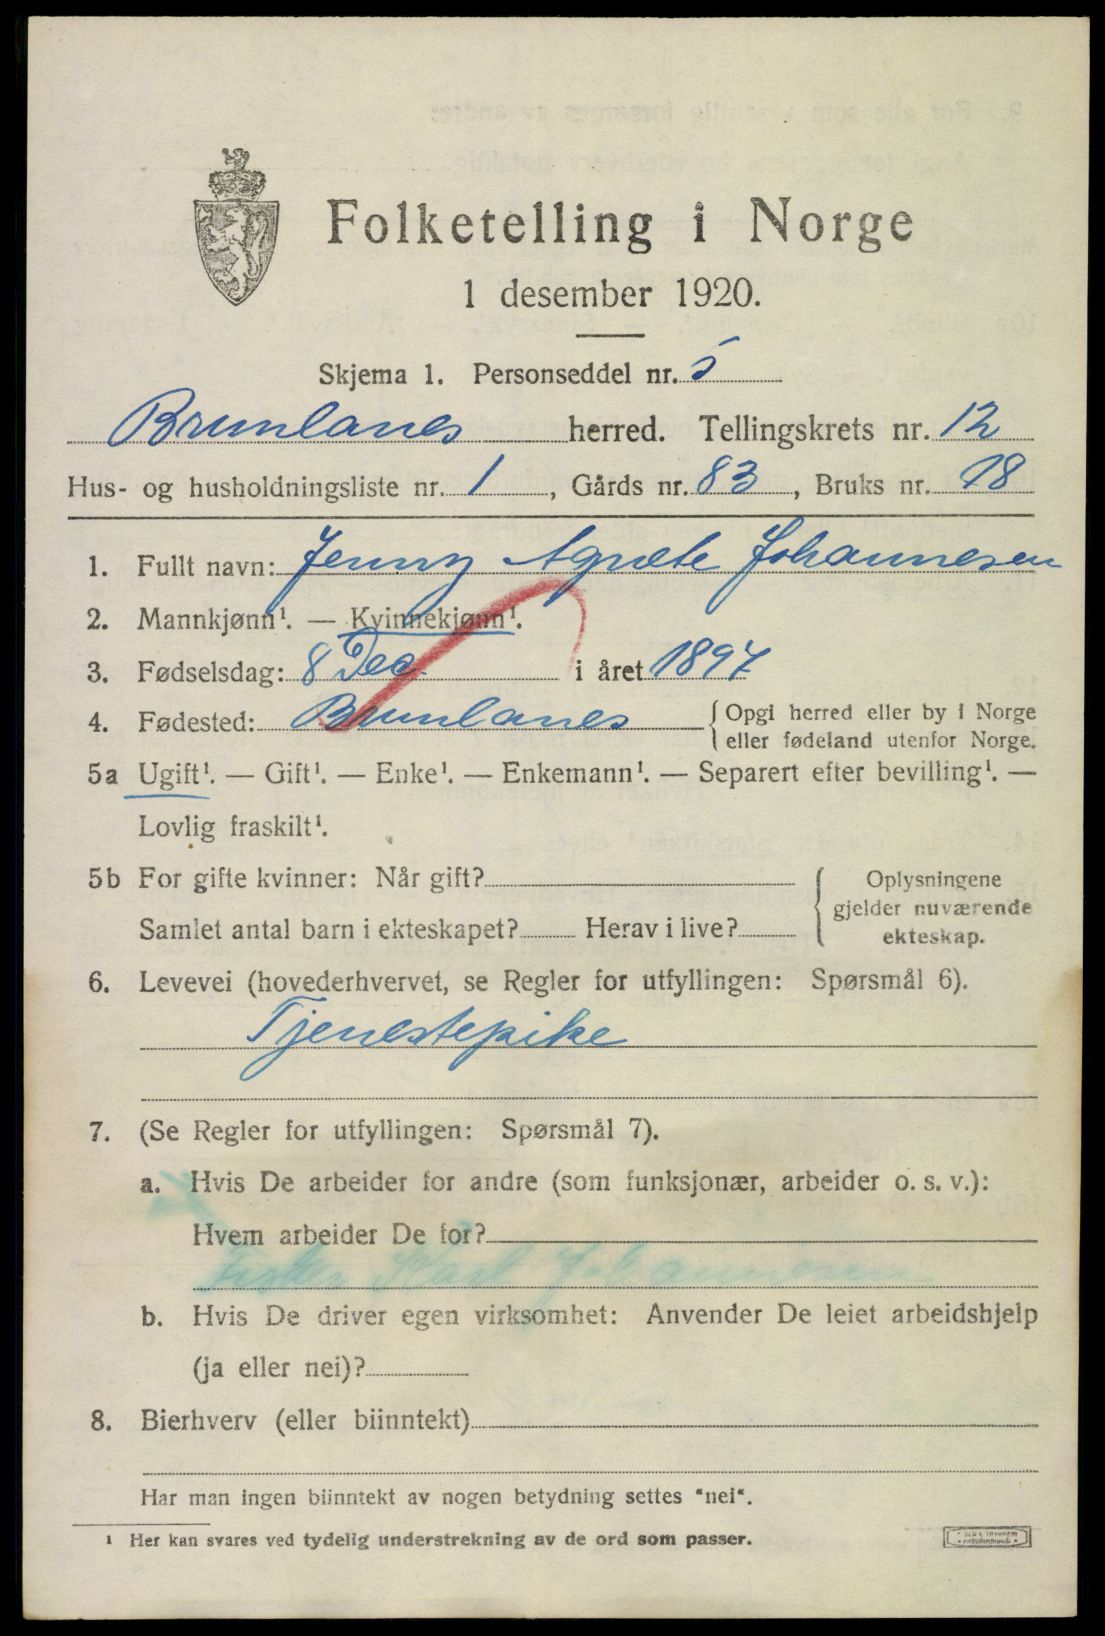 Folketelling i Norge
1 desember 1920.
Skjema 1. Personseddel nr. 5
Brunlanes herred. Tellingskrets nr. 12
Hus- og husholdningsliste nr. 1, Gårds nr. 83, Bruks nr. 18
1. Fullt navn: Jenny Agnete Johannesen
2. Mannkjønn¹. — Kvinnekjønn¹.
3. Fødselsdag: 8 Dec. i året 1897
4. Fødested: Brunlanes { Opgi herred eller by i Norge
eller fødeland utenfor Norge.
5a Ugift¹. — Gift¹. — Enke¹. — Enkemann¹. — Separert efter bevilling¹. —
Lovlig fraskilt¹.
5b For gifte kvinner: Når gift? { Oplysningene
gjelder nuværende
Samlet antal barn i ekteskapet? Herav i live?
ekteskap.
6. Levevei (hovederhvervet, se Regler for utfyllingen: Spørsmål 6).
Tjenestepike
7. (Se Regler for utfyllingen: Spørsmål 7).
a. Hvis De arbeider for andre (som funksjonær, arbeider o. s. v.):
Hvem arbeider De for?
Karl Johannesen
b. Hvis De driver egen virksomhet: Anvender De leiet arbeidshjelp
(ja eller nei)?
8. Bierhverv (eller biinntekt)
Har man ingen biinntekt av nogen betydning settes "nei".
¹ Her kan svares ved tydelig understrekning av de ord som passer.